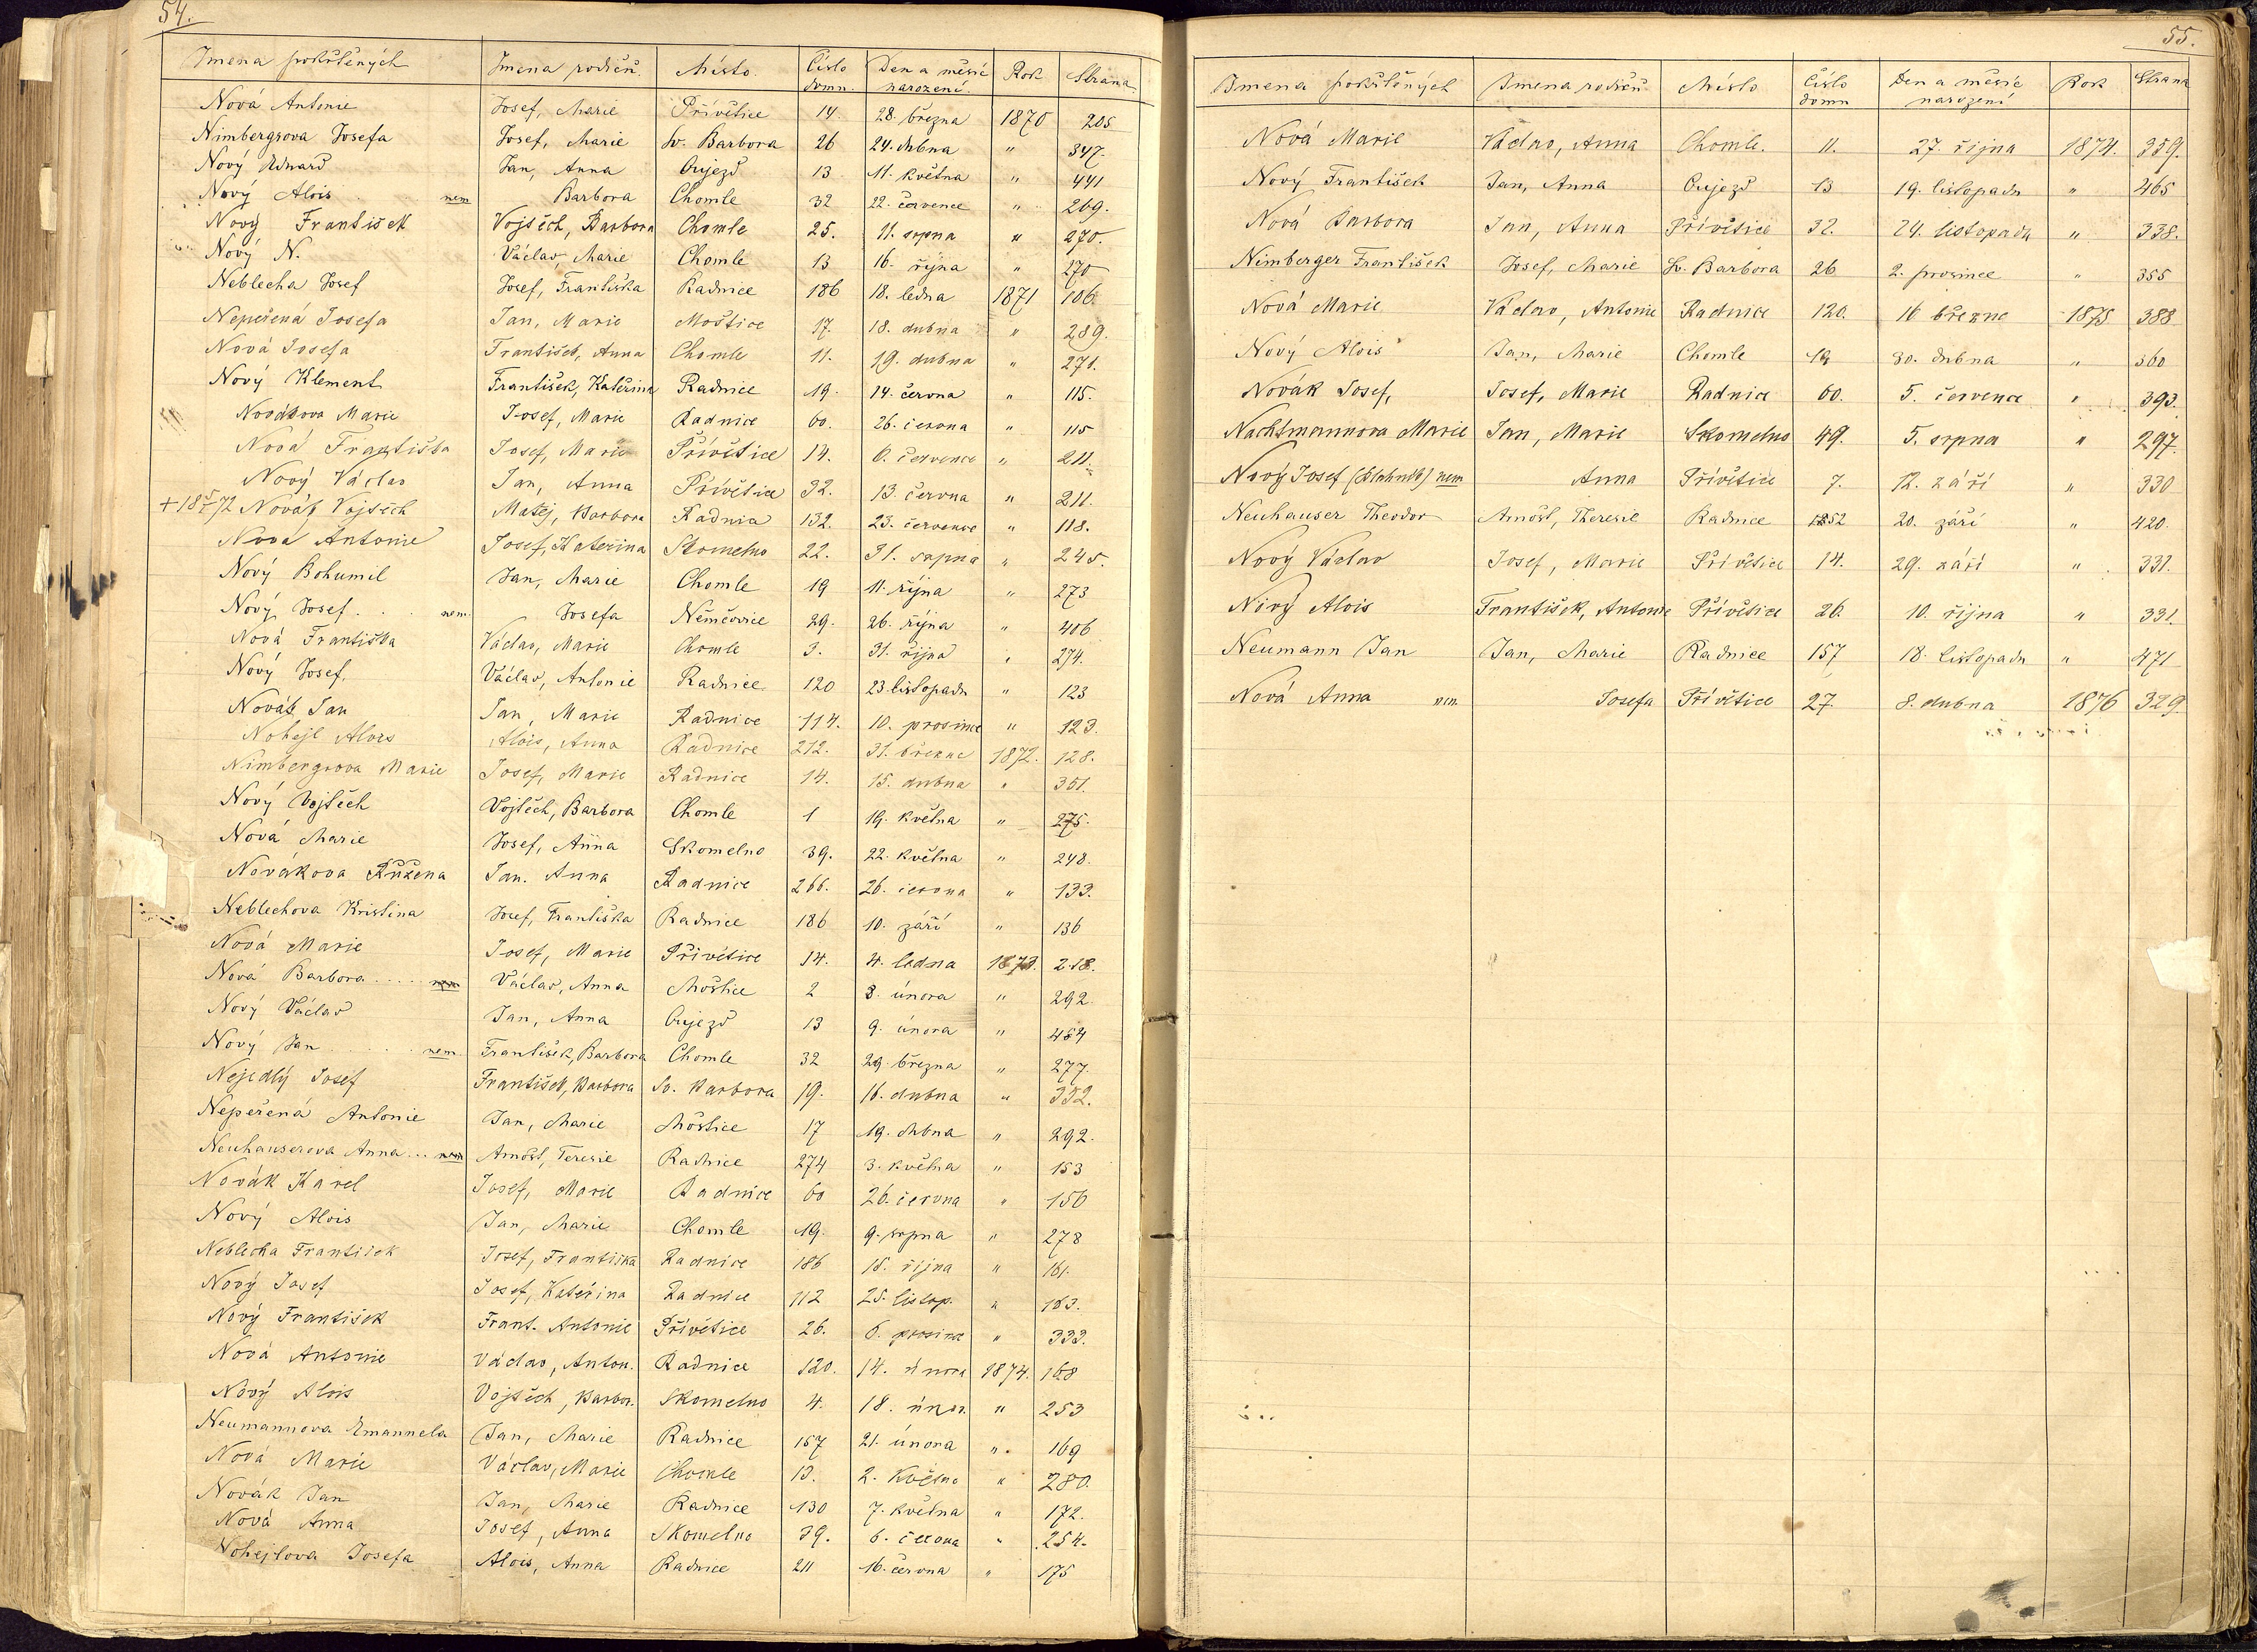 54.
Jmena pokřtěných Jmena rodičů. Místo. Číslo domu. Den a měsíc narození. Rok Strana
Nová Antonie Josef, Marie Přívětice 14. 28. března 1870 205
Nimbergrova Josefa Josef, Marie Sv. Barbora 26 24. dubna " 347.
Nový Eduard Jan, Anna Oujezd 13 11. května " 441
Nový Alois nem Barbora Chomle 32 22. července " 269.
Nový František Vojtěch, Barbora Chomle 25. 11. srpna " 270.
Nový N. Václav Marie Chomle 13 16. října " 270
Neblecha Josef Josef, Františka Radnice 186 18. ledna 1871 106.
Nepeřená Josefa Jan, Marie Moštice 17. 18. dubna " 289.
Nová Josefa František, Anna Chomle 11. 19. dubna " 271.
Nový Klement František, Kateřina Radnice 19. 14. června " 115.
Novákova Marie Josef, Marie Radnice 60. 26. června " 115
Nová Františka Josef, Marie Přívětice 14. 6. července " 211.
Nový Václav Jan, Anna Přívětice 32. 13. června " 211.
+ 18 5/7 72 Novák Vojtěch Matěj, Barbora Radnice 132. 23. července " 118.
Nová Antonie Josef, Kateřina Skomelno 22. 31. srpna " 245.
Nový Bohumil Jan, Marie Chomle 19 11. října " 273
Nový Josef . . . nem. Josefa Němčovice 29. 26. října " 406
Nová Františka Václav, Marie Chomle 3. 31. října " 274.
Nový Josef. Václav, Antonie Radnice. 120 23. listopadu " 123
Novák Jan Jan, Marie Radnice 114. 10. prosince " 123.
Nohejl Alois Alois, Anna Radnice 212. 31. března 1872. 128.
Nimbergrova Marie Josef, Marie Radnice 14. 15. dubna " 351.
Nový Vojtěch Vojtěch, Barbora Chomle 1 19. května " 275.
Nová Marie Josef, Anna Skomelno 39. 22. května " 248.
Novákova Růžena Jan. Anna Radnice 266. 26. června " 133.
Neblechova Kristina Josef, Františka Radnice 186 10. září " 136
Nová Marie Josef, Marie Přívětice 14. 4. ledna 1873. 218.
Nová Barbora . . . . nem Václav, Anna Moštice 2 3. února " 292.
Nový Václav Jan, Anna Oujezd 13 9. února " 454
Nový Jan . . . . . nem. František, Barbora Chomle 32 29. března " 277.
Nejedlý Josef František, Barbora Sv. Barbora 19. 16. dubna " 352.
Nepeřená Antonie Jan, Marie Moštice 17 19. dubna " 292.
Neuhauserova Anna . . . nem Arnošt, Teresie Radnice 274 3. května " 153
Novák Karel Josef, Marie Radnice 60 26. června " 156
Nový Alois Jan, Marie Chomle 19. 9. srpna " 278
Neblecha František Josef, Františka Radnice 186 15. října " 161.
Nový Josef Josef, Kateřina Radnice 112 25. listop. " 163.
Nový František Frant. Antonie Přívětice 26. 6. prosince " 333.
Nová Antonie Václav, Anton. Radnice 120. 14. února 1874. 168
Nový Alois Vojtěch, Barbor. Skomelno 4. 18. únor. " 253
Neumannova Emanuela Jan, Marie Radnice 157 21. února " 169
Nová Marie Václav, Marie Chomle 13. 2. května " 280.
Novák Jan Jan, Marie Radnice 130 7. května " 172.
Nová Anna Josef, Anna Skomelno 39. 6. června " 254.
Nohejlova Josefa Alois, Anna Radnice 211 16. června " 175
55.
Jmena pokřtěných Jmena rodičů Místo Číslo domu Den a měsíc narození Rok Strana
Nová Marie Václav, Anna Chomle. 11. 27. října 1874. 359.
Nový František Jan, Anna Oujezd 13 19. listopadu " 465
Nová Barbora Jan, Anna Přívětice 32. 24. listopadu " 338.
Nimberger František Josef, Marie Sv. Barbora 26 2. prosince " 355
Nová Marie Václav, Antonie Radnice 120. 16 března 1875 388
Nový Alois Jan, Marie Chomle 19 30. dubna " 360
Novák Josef, Josef, Marie Radnice 60. 5. července " 393.
Nachtmannova Marie Jan, Marie Skomelno 49. 5. srpna " 297.
Nový Josef nem Anna Přívětice 7. 12. září " 330
Neuhauser Theodor Arnošt, Theresie Radnice 1852 20. září " 420.
Nový Václav Josef, Marie Přívětice 14. 29. září " 331.
Nový Alois František, Antonie Přívětice 26. 10. října " 331.
Neumann Jan Jan, Marie Radnice 157 18. listopadu " 471
Nová Anna nem. Josefa Přívětice 27. 8. dubna 1876 329.